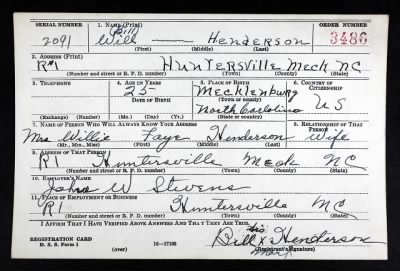 SERIAL NUMBER 1. NAME (Print) ORDER NUMBER
(Bill)
2091 Will — Henderson 3486
(First) (Middle) (Last)
2. ADDRESS (Print)
R#1 Huntersville Meck NC
(Number and street or R. F. D. number) (Town) (County) (State)
3. TELEPHONE 4. AGE IN YEARS 5. PLACE OF BIRTH 6. COUNTRY OF CITIZENSHIP
25 Mecklenburg
DATE OF BIRTH (Town or county) U S
North Carolina
(Exchange) (Number) (Mo.) (Day) (Yr.) (State or country)
7. NAME OF PERSON WHO WILL ALWAYS KNOW YOUR ADDRESS 8. RELATIONSHIP OF THAT PERSON
Mrs Willie Faye Henderson Wife
(Mr., Mrs., Miss) (First) (Middle) (Last)
9. ADDRESS OF THAT PERSON
R1 Huntersville Meck NC
(Number and street or R. F. D. number) (Town) (County) (State)
10. EMPLOYER'S NAME
John W Stevens
11. PLACE OF EMPLOYMENT OR BUSINESS
R1 Huntersville NC
(Number and street or R. F. D. number) (Town) (County) (State)
I AFFIRM THAT I HAVE VERIFIED ABOVE ANSWERS AND THAT THEY ARE TRUE.
his
REGISTRATION CARD Bill x Henderson
D. S. S. Form 1 (over) 16—17105 (Registrant's signature)
mark